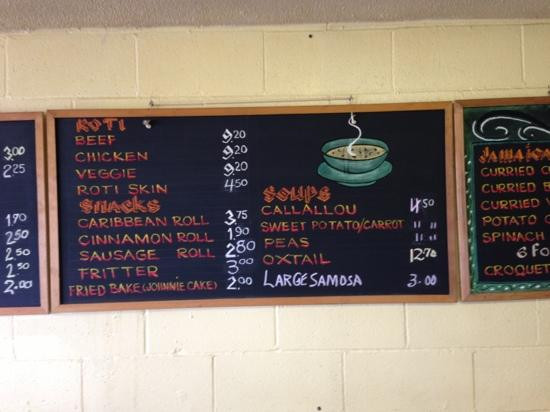 3.00
2.25
1.90
2.50
2.50
2.50
2.00
ROTI
BEEF 9.20
CHICKEN 9.20
VEGGIE 9.20
ROTI SKIN 4.50
SNACKS
CARIBBEAN ROLL 3.75
CINNAMON ROLL 1.90
SAUSAGE ROLL 2.80
FRITTER 3.00
FRIED BAKE (JOHNNIE CAKE) 2.00
SOUPS
CALLALLOU 4.50
SWEET POTATO/CARROT " "
PEAS " "
OXTAIL 12.70
LARGE SAMOSA 3.00
JAMAICA
CURRIED
CURRIED
CURRIED
POTATO
SPINACH
6 FO
CROQUET